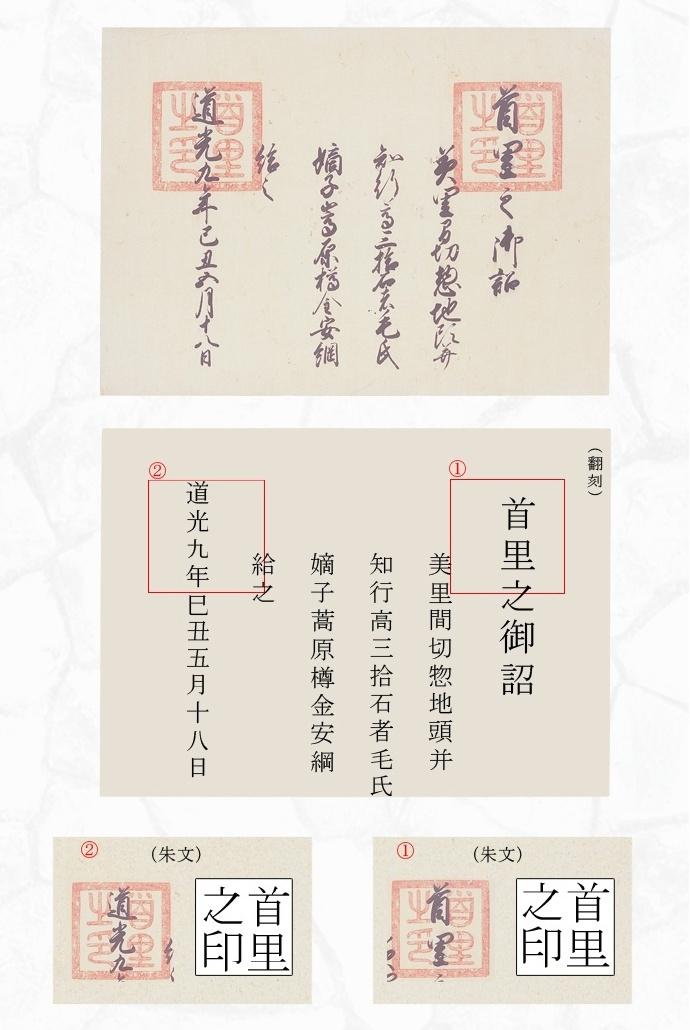 首里之御詔
美里間切惣地頭并
知行高三拾石者毛氏
嫡子嵩原樽金安綱
給之
道光九年己丑五月十八日
首里之印
首里之印
(翻刻)
①
首里之御詔
美里間切惣地頭并
知行高三拾石者毛氏
嫡子蒿原樽金安綱
給之
②
道光九年巳丑五月十八日
①
(朱文)
首里
之印
首里
②
(朱文)
首里
之印
道光九